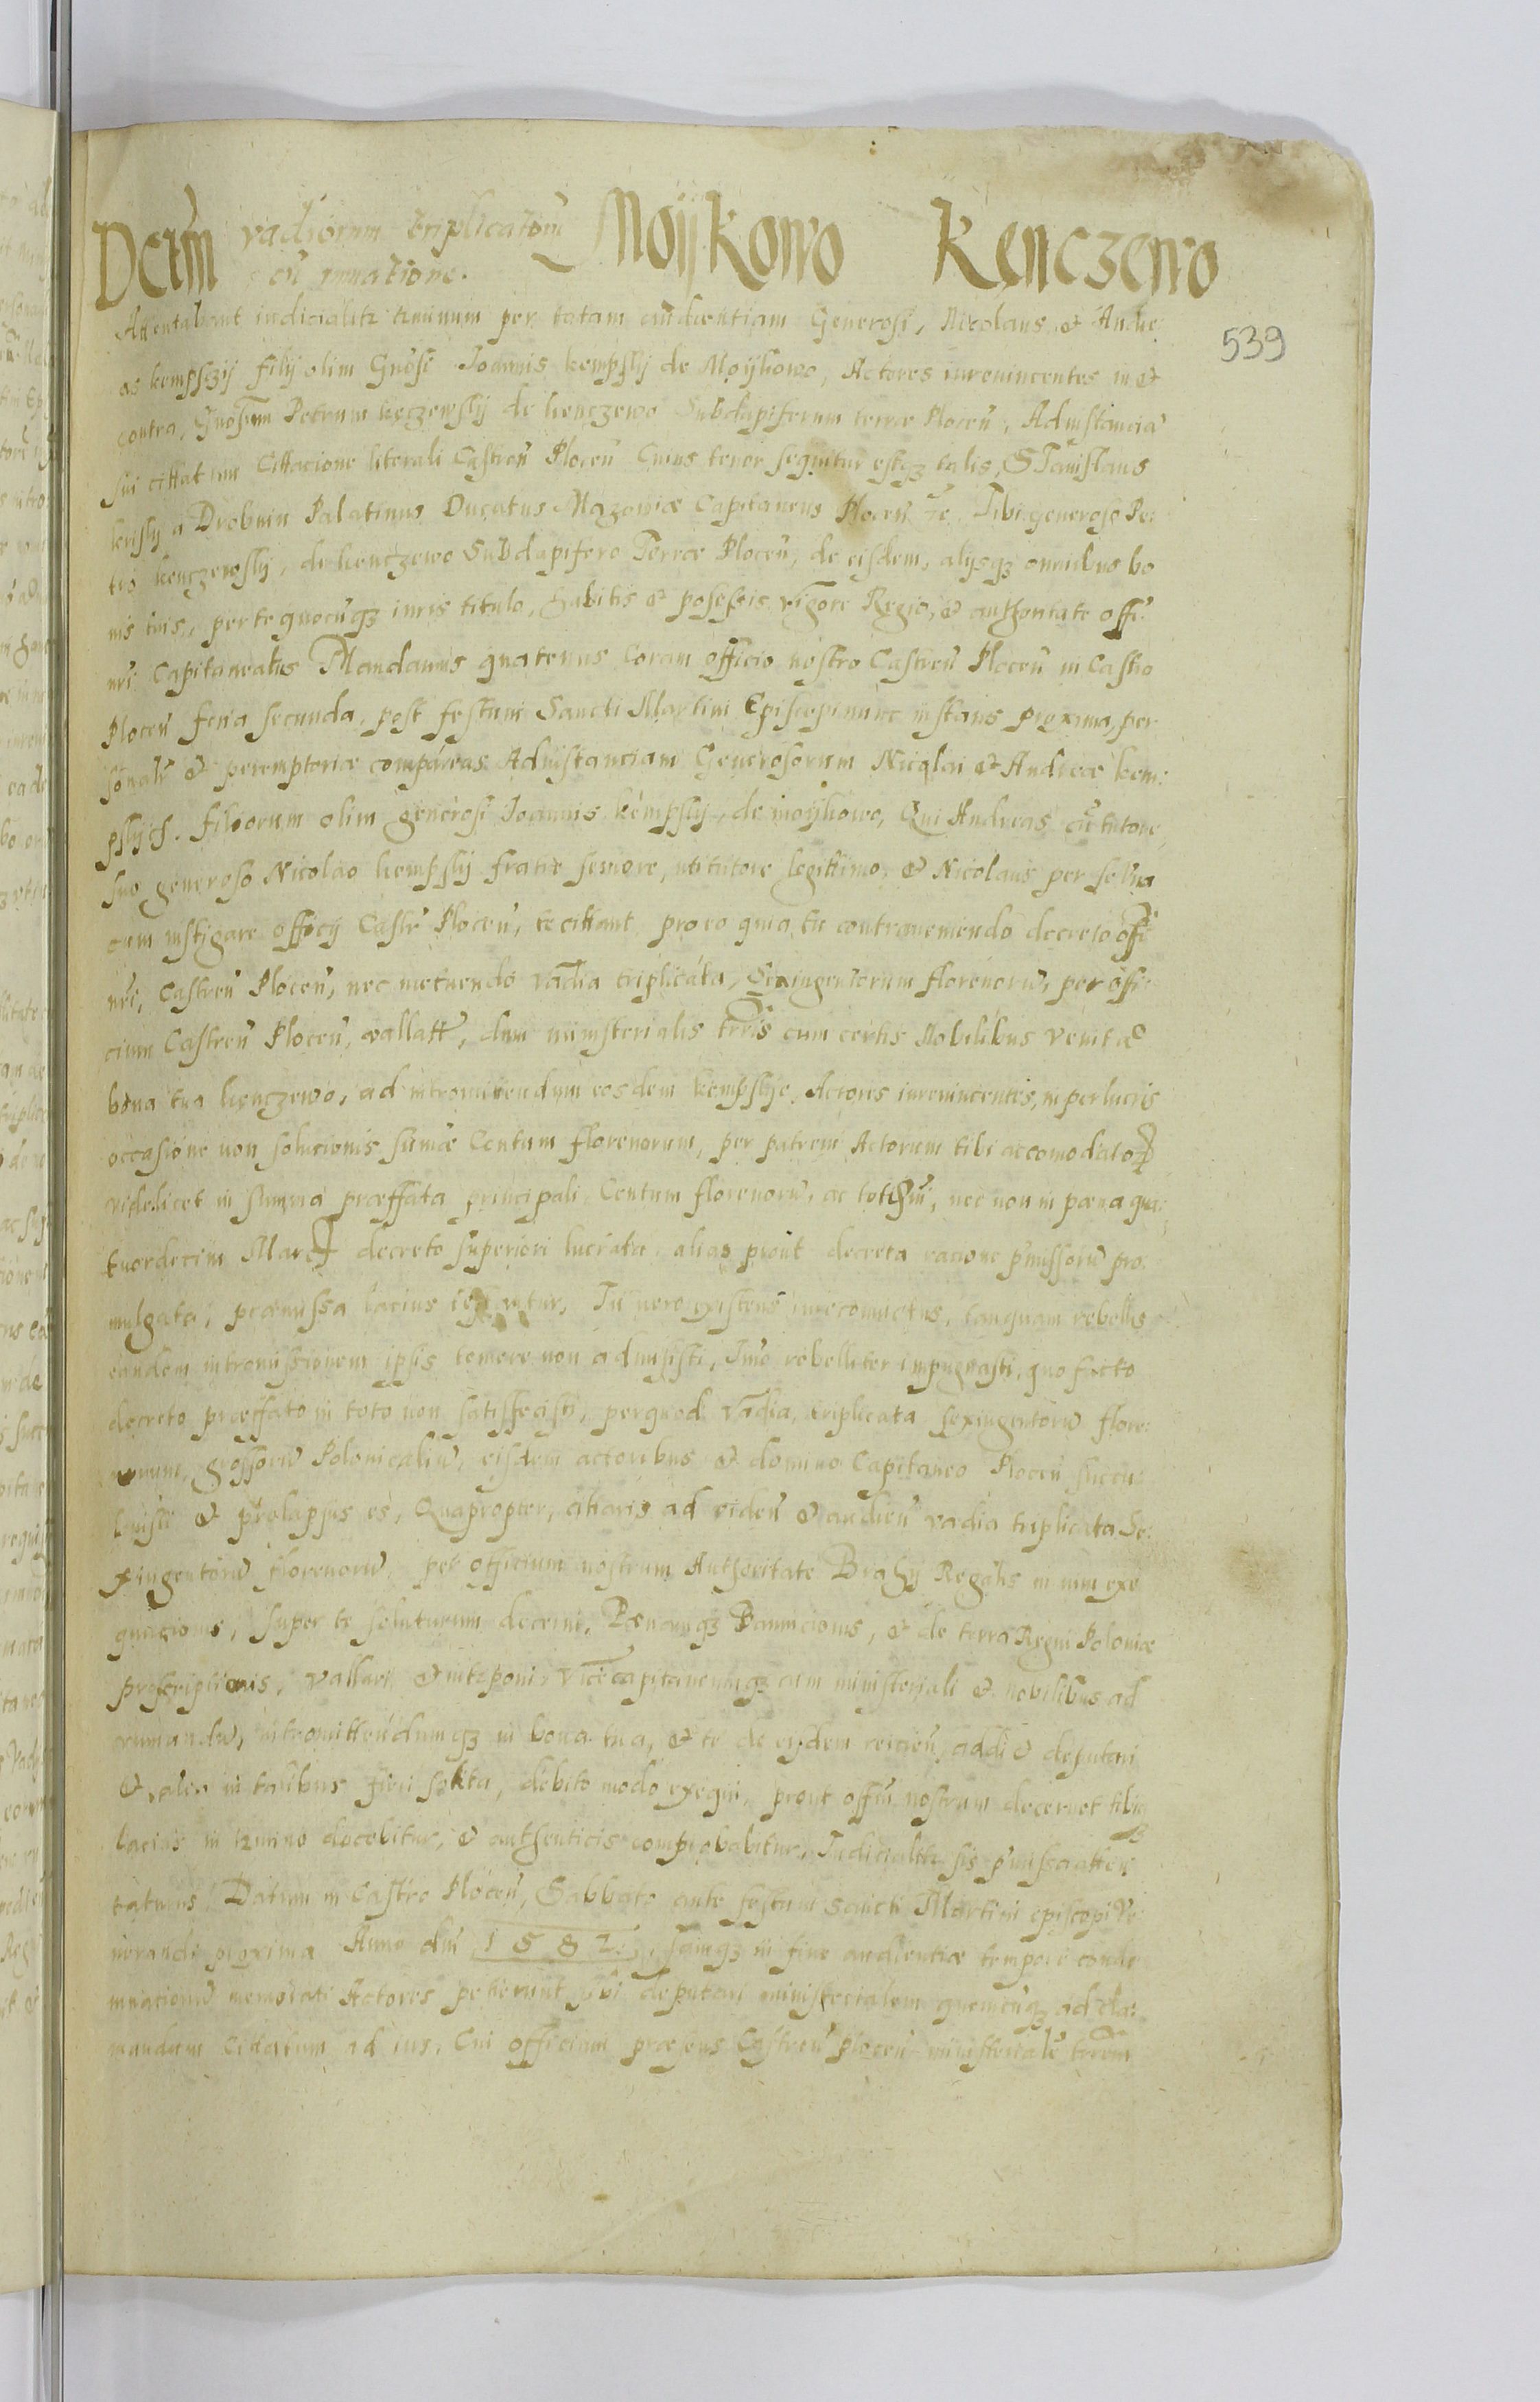 Dctm̄ vadiorum triplicatorū Moijkowo Kenczewo
cū innatione.
539
Attentabant iudicialitr terminum per totam audientiam Generosi, Nicolaus et Andre:
as kempszij filij olim Gnosi Joannis kempskij de Moijkowo, Actores iurevincentes in et
contra, Gnosum Petrum kęczewskij de kenczewo Subdapiferum terrae Plocen̄, Ad instancia
sui cittatum Cittacione literali Castren̄ Plocen̄ Cuius tenor sequitur estqz talis, Stanislaus
kriskij a Drobnin Palatinus Ducatus Mazowiae Capitaneus Plocen̄ Tibi generoso Pe:
tro kenczewskij, de kenczewo Subdapifero Terrae Plocen̄, de eisdem, alijsqz omnibus bo
nis tuis, per te quocunqz iuris titulo, habitis et possessis, vigore Regio, et authoritate offi
nri Capitanealis Mandamus quatenus Coram officio nostro Castren̄ Plocen̄ in Castro
Plocen̄ feria secunda, post festum Sancti Martini Episcopi nunc instans proxima, per
sonalr et peremptoriae compareas Ad instanciam Generosorum Nicolai et Andreae kem:
pskijch. filiorum olim generosi Joannis kempskij, de moijkowo, Qui Andreas cū tutore
suo generoso Nicolao kempskij fratre seniore, uti tutore legittimo, et Nicolaus per se una
cum instigare officij Castr Plocen̄, te cittant pro eo quia tu contraveniendo decreto offi
nri, Castren̄ Plocen̄, nec metuendo vadia triplicata, Sexingentorum florenorū, per offi
cium Castren̄ Plocen̄, vallatt, dum ministerialis trrīs cum certis Nobilibus venit ad
bona tua kenczewo, ad intromittendum eosdem kempskije Actores iurevincentes, in per lucris
occasione non solucionis summae Centum florenorum, per patrem Actorum tibi accomodator
videlicet in summa praeffata principali Centum florenorū, ac totidem, nec non in paena qua:
tuordecim Marcar decreto superiori lucrata alias prout decreta racione pmissorū pro:
mulgata, praemissa lacius Tu vero existens iure convictus, tanquam rebellis
eandem intromissionem ipsis temere non admisisti, Imo rebelliter impugnasti, quo facto
decreto praeffato in toto non satisfecisti, perquod vadia, triplicata sexingentorū flore:
norum, grossorū Polonicaliū, eisdem actoribus et domino Capitaneo Plocen̄ succu
buisti et prolapsus es, Quapropter, cittaris ad viden̄ et audien̄ vadia triplicata Se:
xingentorū florenorū per officium nostrum Authoritate Brachij Regalis in vim exe
qucionis, super te soluturum decerni, Paenamqz Bannicionis, et de terra Regni Poloniae
proscriptionis, vallari et interponi, vicecapitaneumqz cum ministeriali et nobilibus ad
rumandū, intromittendumqz in bona tua, et te de eisdem reicien̄, addi et deputari
et alia in talibus fieri solita, debito modo exequi, prout offm nostrum decernet tibiqz
lacius in termino docebitur, et authenticis comprobabitur, Judicialitr sis pmissa atten
taturus Datum in Castro Plocen̄, Sabbato ante festum Sancti Martini episcopi Ve:
nerandi proxima Anno dni 1582. Iamqz in fine audientiae tempore conde
mnacionū memorati Actores petierunt sibi deputari ministerialem quemcunqz ad cla:
mandum Cittatum ad ius, Cui officium praesens Castren̄ Plocen̄ ministeriale trrēm